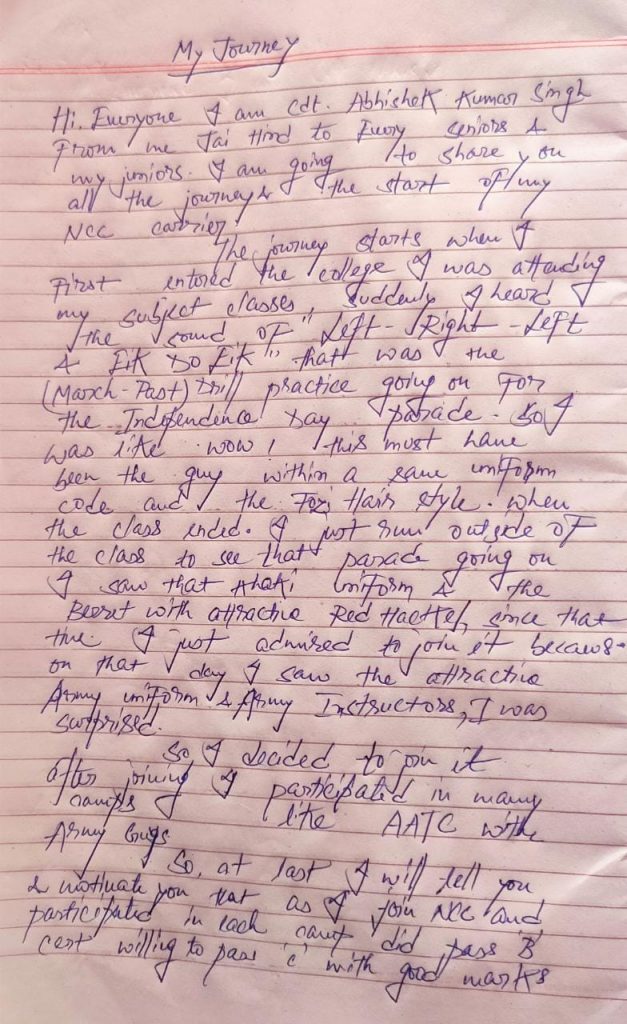 My Journey
Hi. Everyone I am Cdt. Abhishek Kumar Singh
From me Jai Hind to Every seniors &
my juniors. I am going to share you
all the journey & the start of my
NCC carrier.
The journey starts when I
First entered the college I was attending
my subject classes, suddenly I heard
the sound of "Left-Right-Left
& Eik Do Eik" that was the
(March-Past) Drill practice going on For
the Independence Day parade. So I
was like wow! this must have
been the guy within a same uniform
code and the Fozi Hair style. when
the class ended. I just run outside of
the class to see that parade going on
I saw that khaki uniform & the
Beeret with attractive Red Hackel, since that
time. I just admired to join it because
on that day I saw the attractive
Army uniform & Army Instructors, I was
surprised.
So I decided to join it
after joining I participated in many
camps like AATC with
Army Guys
So, at last I will tell you
& motivate you that as I join NCC and
participated in each camp did pass 'B'
cert willing to pass 'C' with good marks